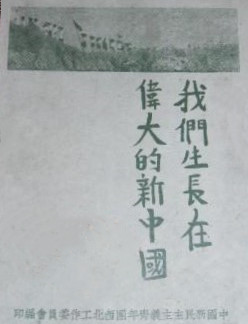 我們生長在
偉大的新中國
中國新民主主義青年團西北工作委員會編印